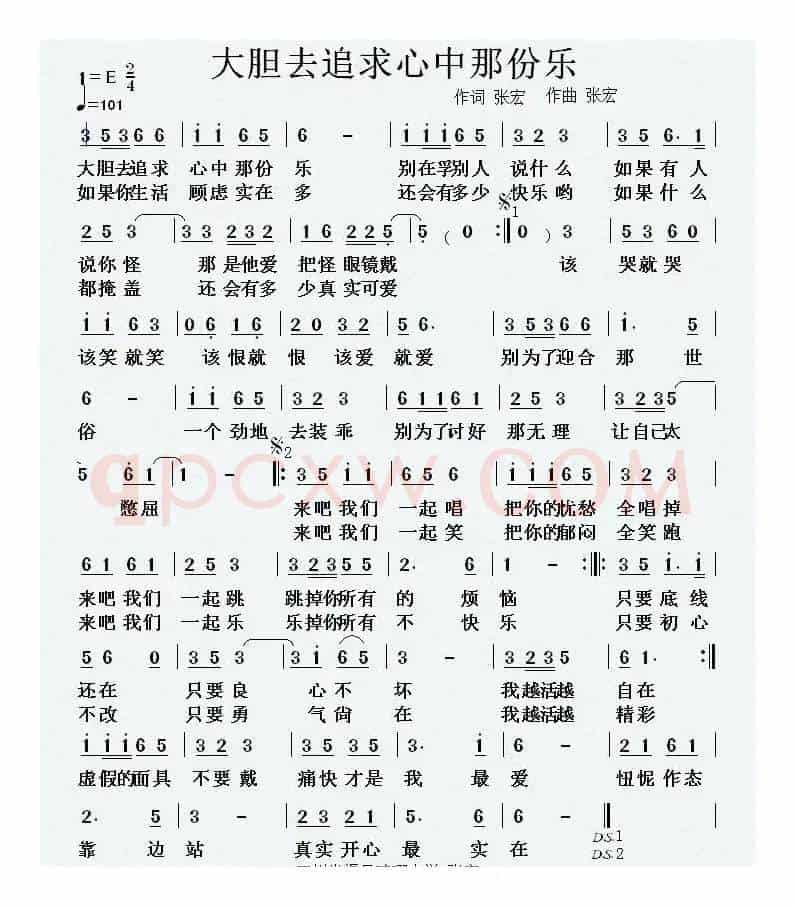 大胆去追求心中那份乐
1=E 2/4
♩=101
作词 张宏 作曲 张宏
3 5 3 6 6 | i i 6 5 | 6 - | i i i 6 5 | 3 2 3 | 3 5 6. 1 |
大胆去追求 心中那份 乐 别在乎别人 说什么 如果有人
如果你生活 顾虑实在 多 还会有多少 快乐哟 如果什么
2 5 3 | 3 3 2 3 2 | 1 6 2 2 5 | 5 ( 0 :‖ 0 ) 3 | 5 3 6 0 |
说你怪 那是他爱 把怪眼镜戴 该 哭就哭
都掩盖 还会有多 少真实可爱
i i 6 3 | 0 6 1 6 | 2 0 3 2 | 5 6. | 3 5 3 6 6 | i. 5 |
该笑就笑 该恨就 恨 该爱 就爱 别为了迎合 那 世
6 - | i i 6 5 | 3 2 3 | 6 1 1 6 1 | 2 5 3 | 3 2 3 5 |
俗 一个劲地 去装乖 别为了讨好 那无理 让自己太
5 6 1 | 1 - ‖: 3 5 i i | 6 5 6 | i i i 6 5 | 3 2 3 |
憋屈 来吧我们 一起唱 把你的忧愁 全唱掉
来吧我们 一起笑 把你的郁闷 全笑跑
6 1 6 1 | 2 5 3 | 3 2 3 5 5 | 2. 6 | 1 - :‖: 3 5 i. i |
来吧我们 一起跳 跳掉你所有 的 烦 恼 只要底线
来吧我们 一起乐 乐掉你所有 不 快 乐 只要初心
5 6 0 | 3 5 3 | 3 i 6 5 | 3 - | 3 5 3 5 | 6 1. :‖
还在 只要良 心不 坏 我越活越 自在
不改 只要勇 气尚 在 我越活越 精彩
i i i 6 5 | 3 2 3 | 3 5 3 5 | 3. i | 6 - | 2 1 6 1 |
虚假的面具 不要戴 痛快才是 我 最 爱 忸怩作态
2. 5 | 3 - | 2 3 2 1 | 5. 6 | 6 - ‖
靠 边 站 真实开心 最 实 在
D.S.1
D.S.2
qpcxw.COM